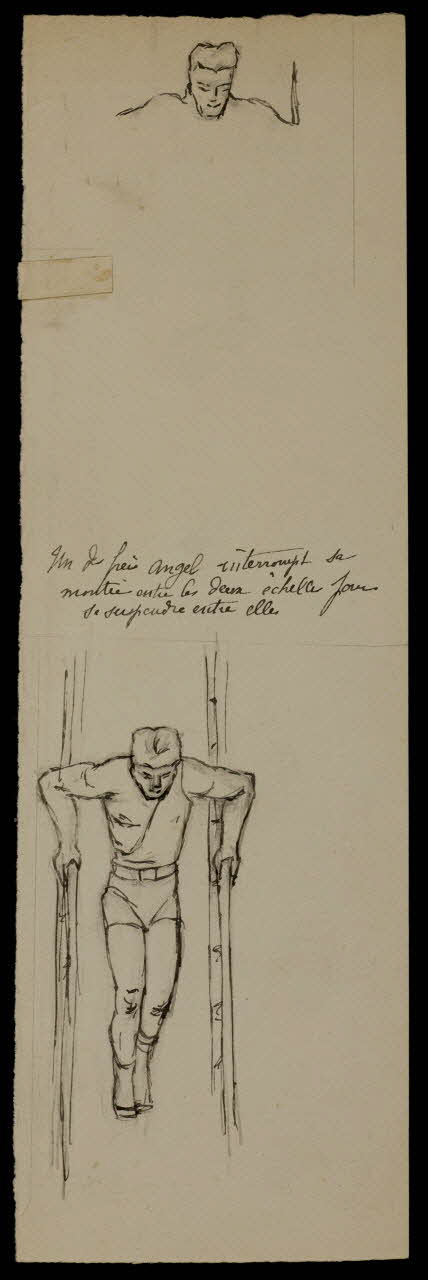 Un de freis Angel interrompt sa
montée entre les deux échelles pour
se suspendre entre elles